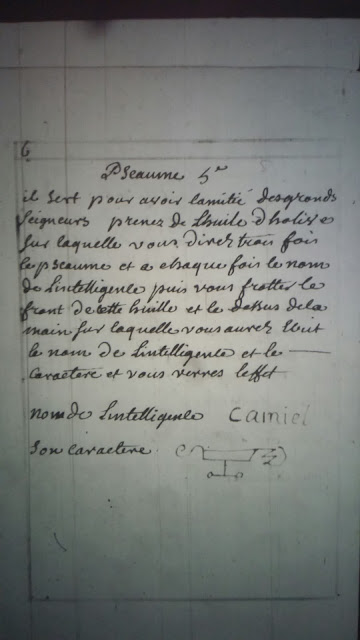 6
Pseaume 5e
il sert pour avoir lamitié desgrands
seigneurs prenez de Lhuile dholive
sur laquelle vous direz trois fois
le pseaume et a chaque fois le nom
de Lintelligence puis vous frotter le
front de cette huille et le dessus dela
main sur laquelle vous aurez Ecrit
le nom de Lintelligence et le —
Caractere et vous verres Leffet
nom de Lintelligence Camiel
son caractere